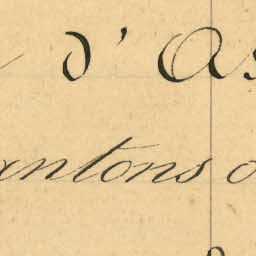 d' As
antons d